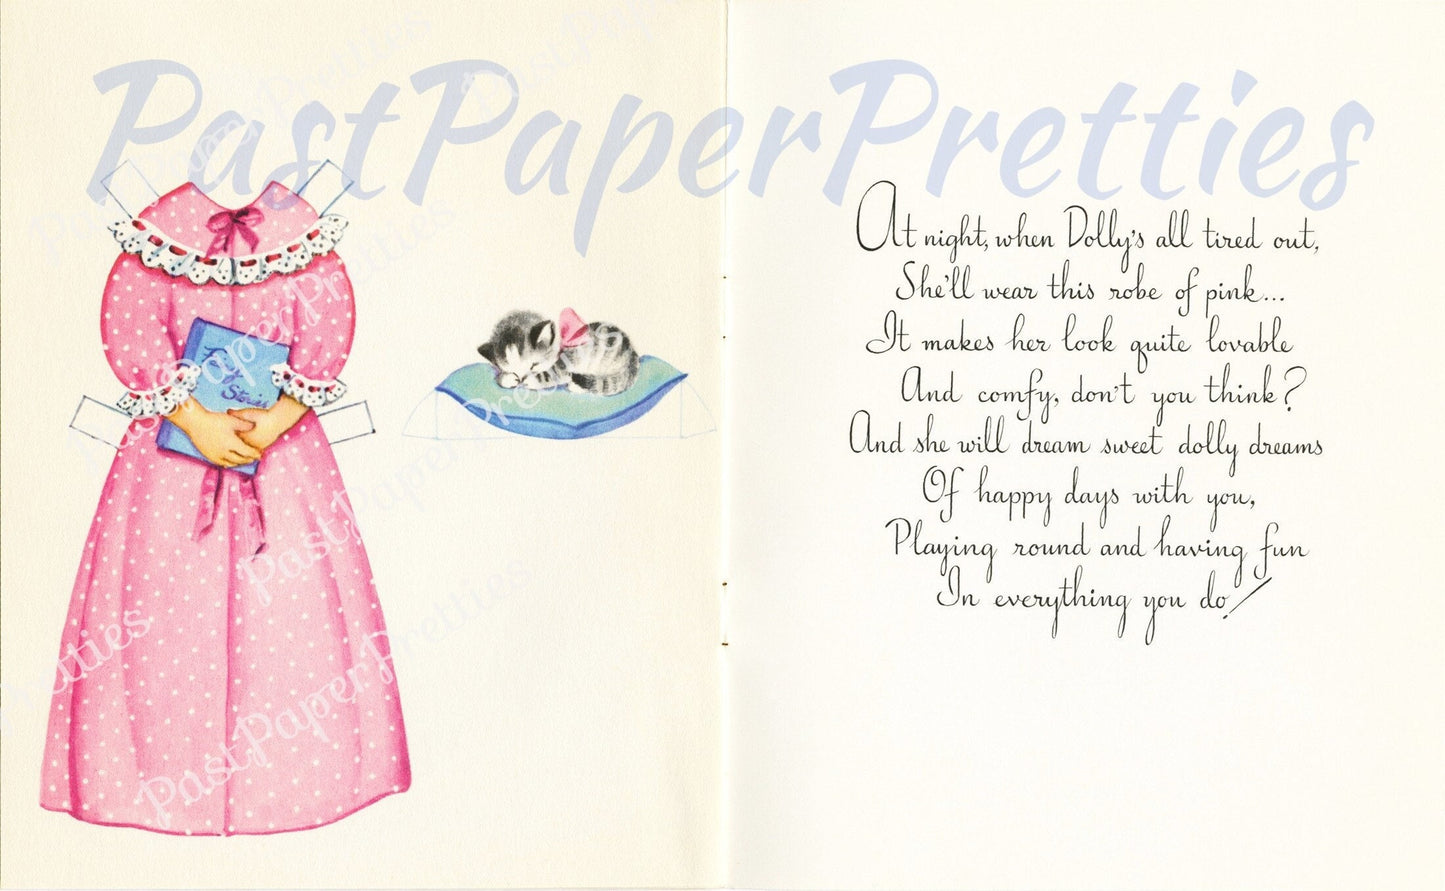 PastPaperPretties
Stories
At night, when Dolly's all tired out,
She'll wear this robe of pink...
It makes her look quite lovable
And comfy, don't you think?
And she will dream sweet dolly dreams
Of happy days with you,
Playing round and having fun
In everything you do!
PastPaperPretties
PastPaperPretties
PastPaperPretties
PastPaperPretties